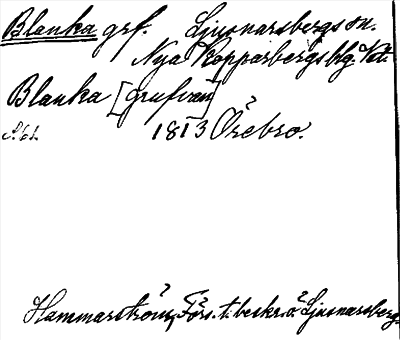 Blanka grf. Ljusnarsbergs sn.
Nya Kopparbergs blg. Vstm.
Blanka [grufvan]
S. 62 1813 Örebro.
Hammarström, Förs. t. beskr. ö. Ljusnarsberg.